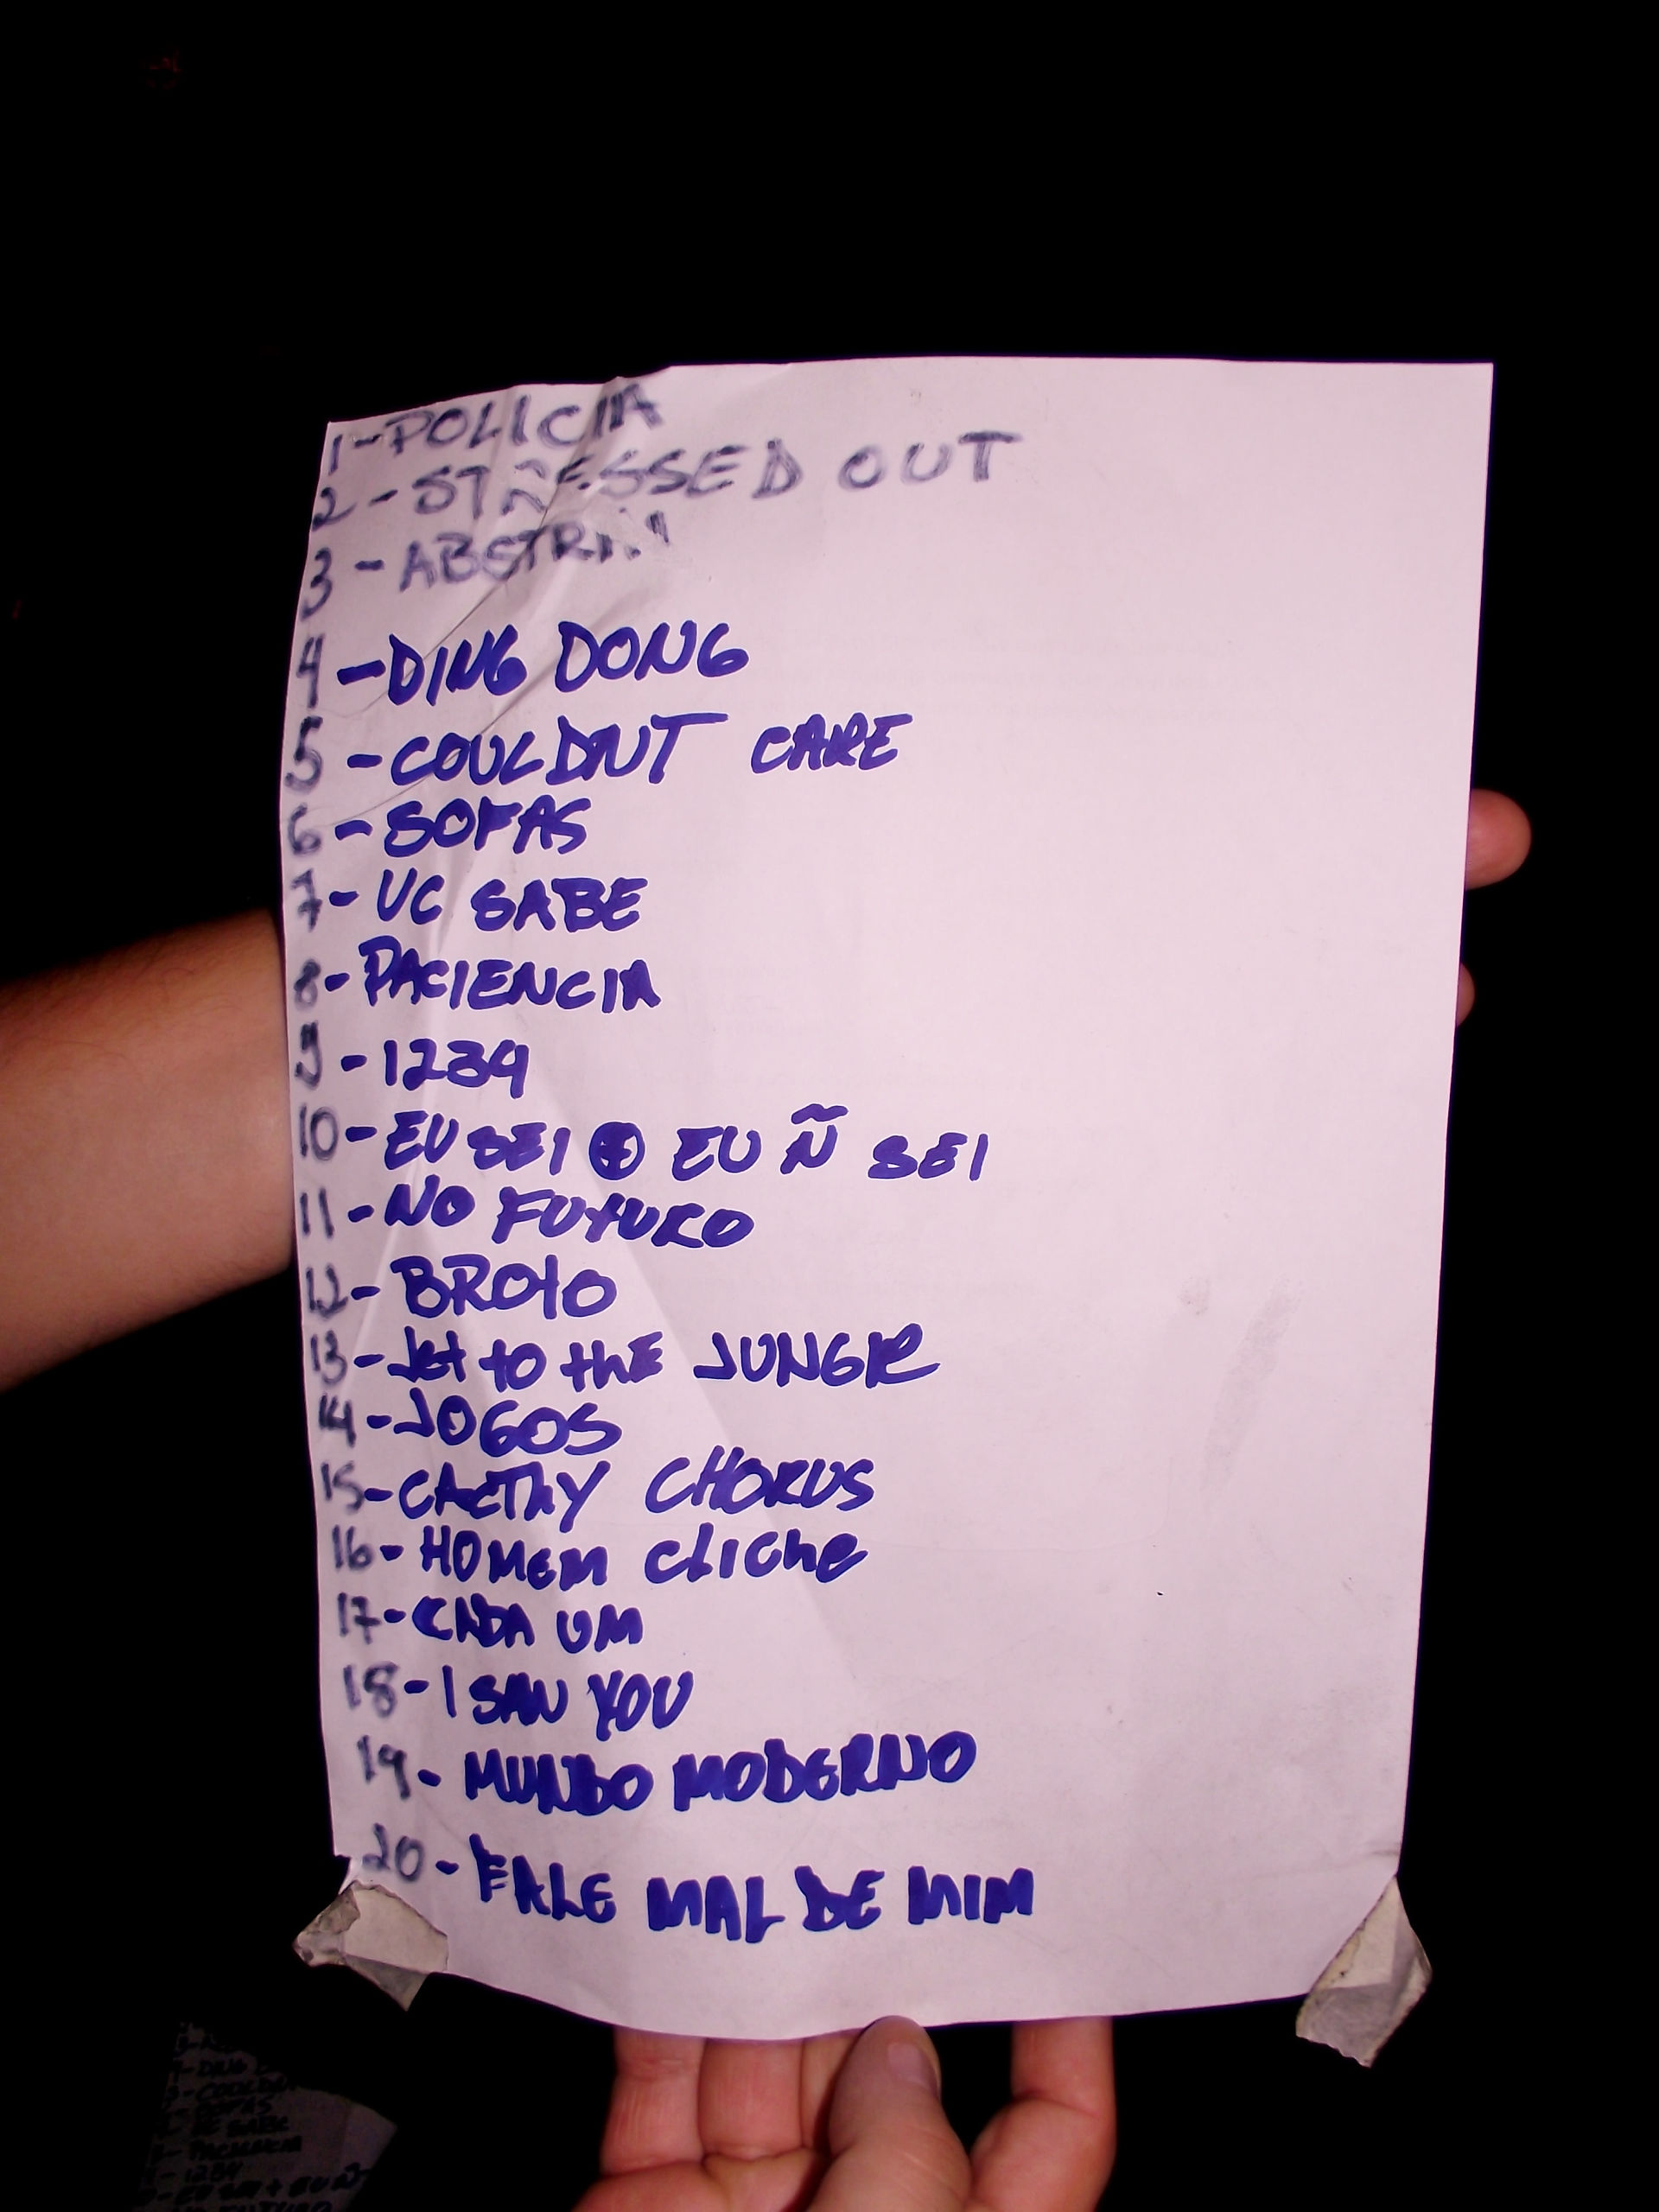 1-POLICIA
2-STRESSED OUT
3-
4-DING DONG
5-COULDNT CARE
6-SOFAS
7-VC SABE
8-PACIENCIA
9-1234
10-EU SEI + EU Ñ SEI
11-NO FUTURO
12-BROTO
13-Jet to thE JUNGLE
14-JOGOS
15-CACTHY CHORUS
16-HOMEM cliche
17-CADA UM
18-I SAW YOU
19-MUNDO MODERNO
20-FALE MAL DE MIM